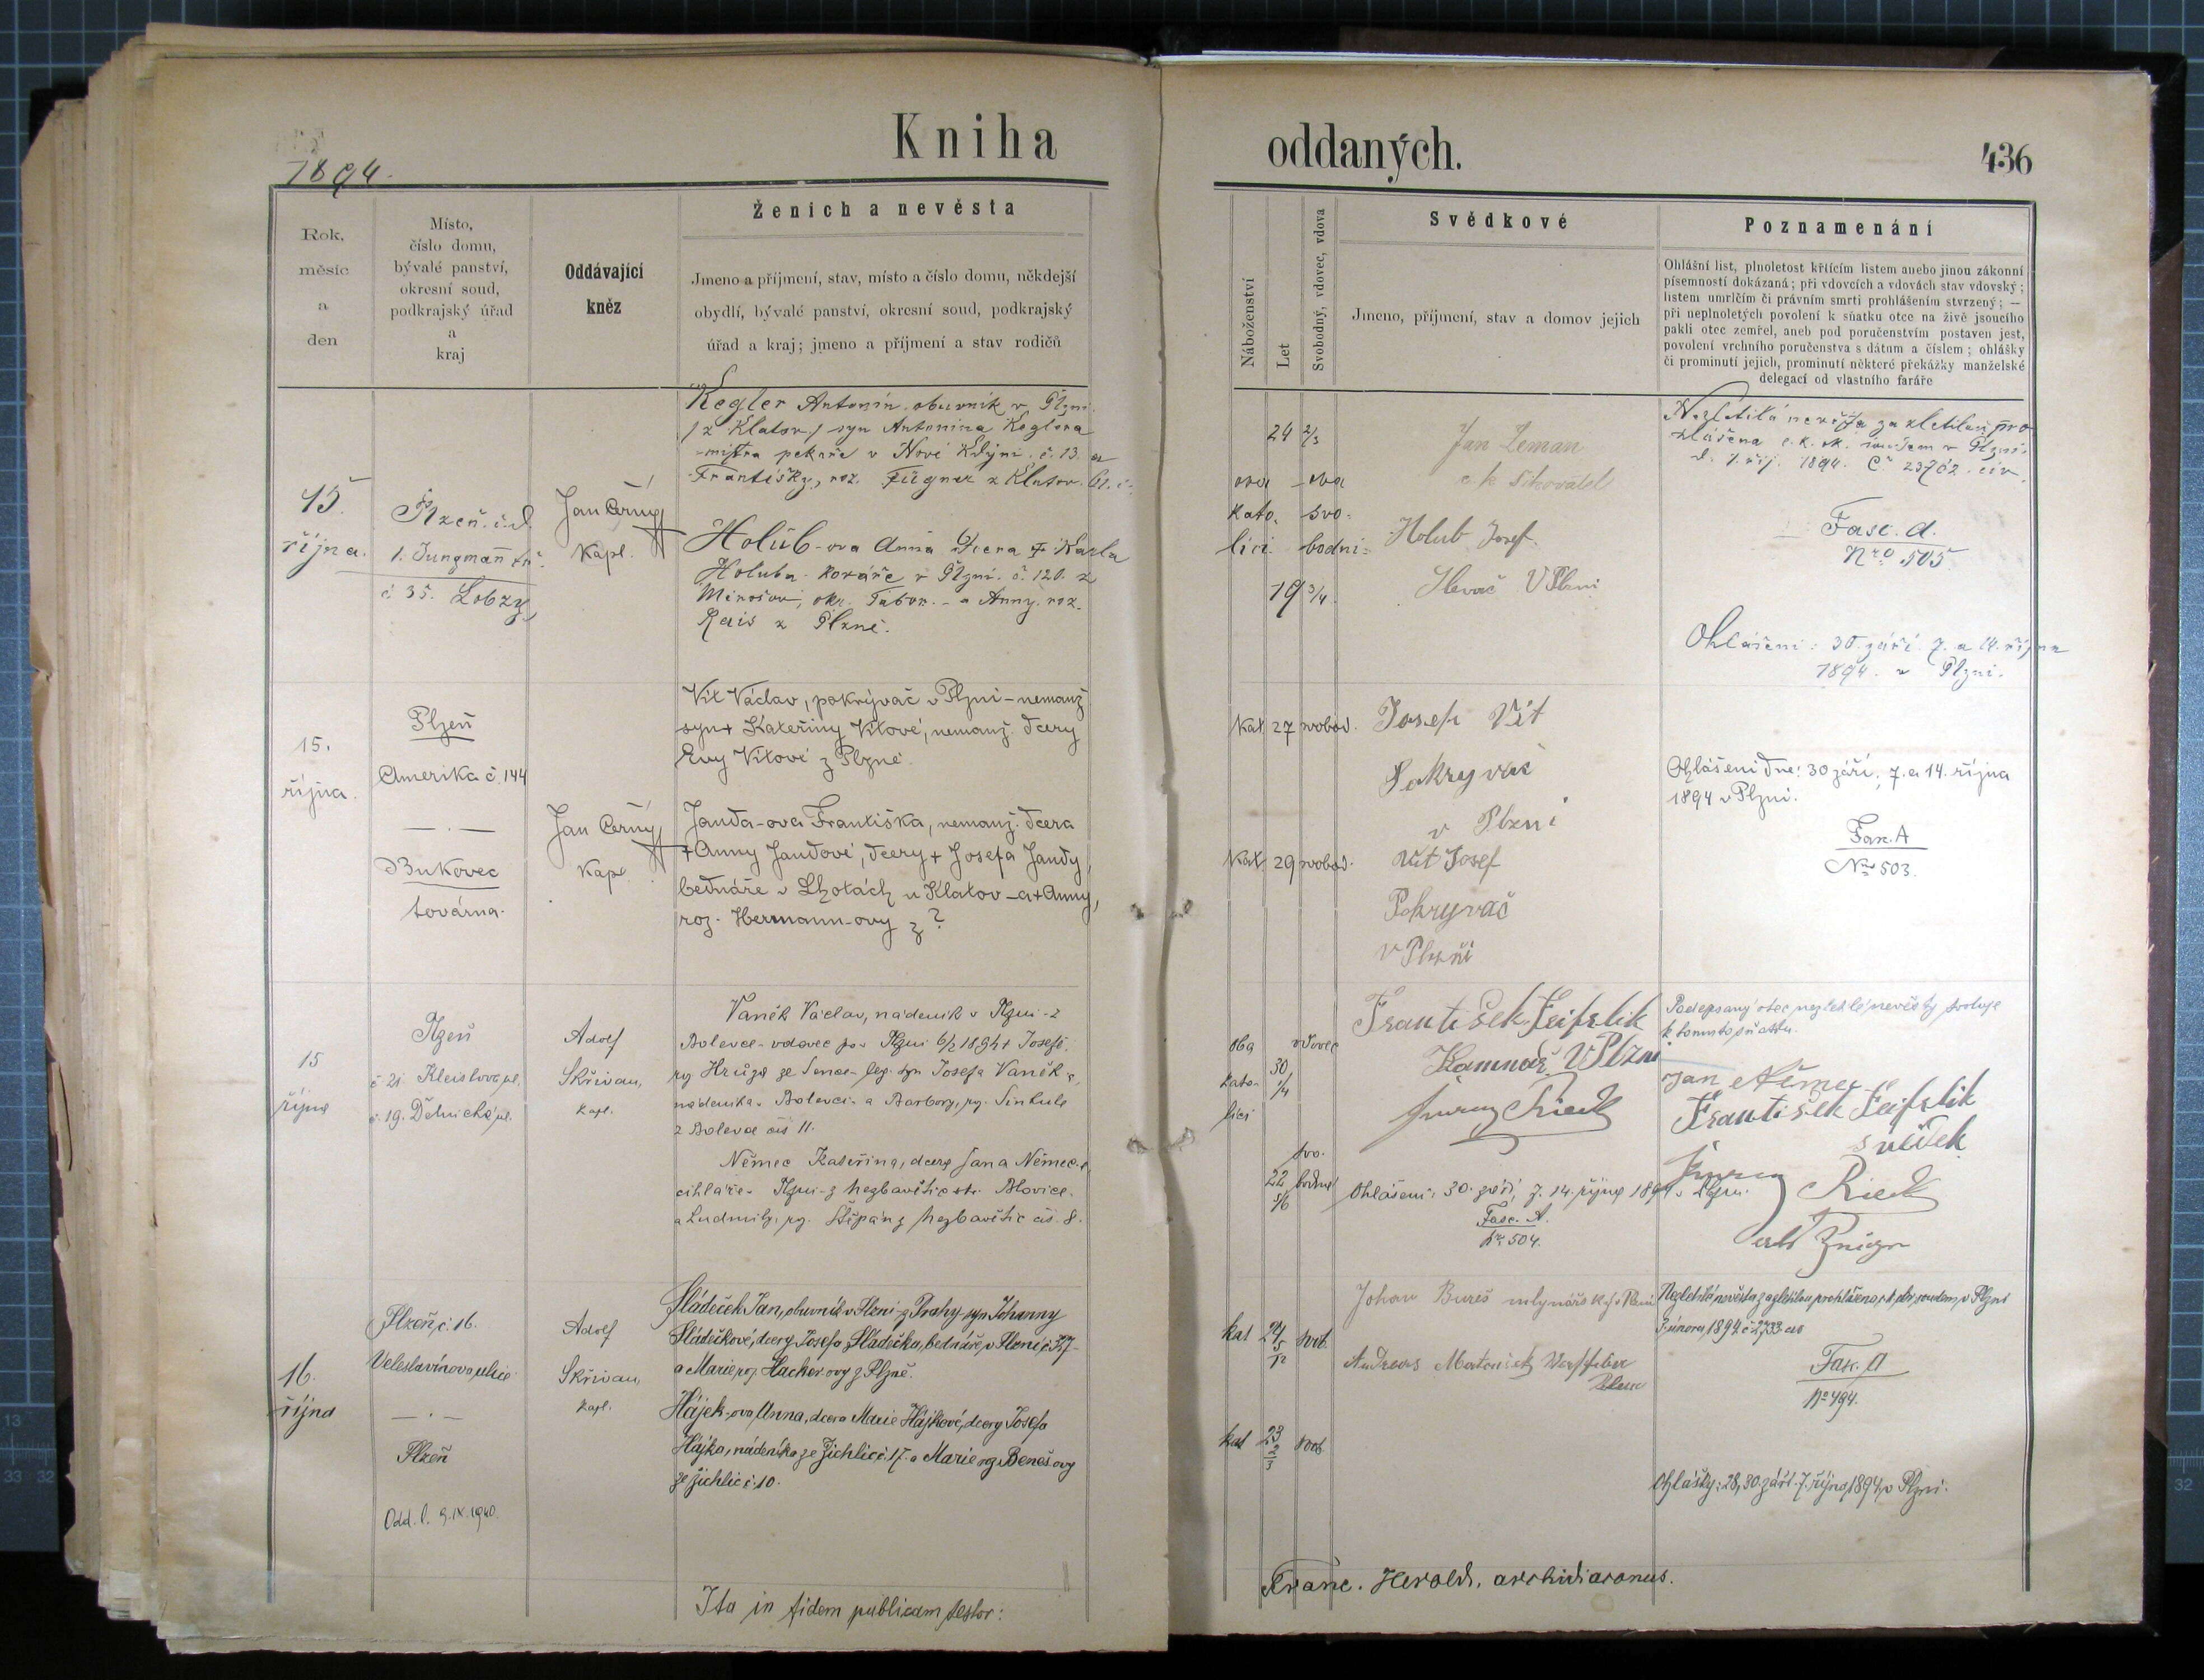 1894.
Kniha
oddaných.
436
Rok,
měsíc
a
den
Místo,
číslo domu,
bývalé panství,
okresní soud,
podkrajský úřad
a
kraj
Oddávající
kněz
Ženich a nevěsta
Jmeno a příjmení, stav, místo a číslo domu, někdejší
obydlí, bývalé panství, okresní soud, podkrajský
úřad a kraj; jmeno a příjmení a stav rodičů
Náboženství
Let
Svobodný, vdovec, vdova
Svědkové
Jmeno, příjmení, stav a domov jejich
Poznamenání
Ohlášní list, plnoletost křticím listem anebo jinou zákonní
písemností dokázaná; při vdovcích a vdovách stav vdovský;
listem umrlčím či právním smrti prohlášením stvrzený; —
při neplnoletých povolení k sňatku otce na živě jsoucího
pakli otec zemřel, aneb pod poručenstvím postaven jest,
povolení vrchního poručenstva s dátum a číslem; ohlášky
či prominutí jejich, prominutí některé překážky manželské
delegací od vlastního faráře
15.
října.
Plzeň. č. d.
1. Jungmann tř.
č 35. Lobzy
Jan Černý
Kapl.
Kegler Antonín, obuvník v Plzni
/z Klatov/ syn Antonína Keglera
mistra pekaře v Nové Kdyni. č. 13. a
Františky, roz. Fügner z Klatov. 61. č.
Holub-ova Anna dcera + Karla
Holuba. kováře v Plzni. č. 120. z
Mirošov, okr. Tábor. - a Anny. roz.
Rais z Plzně.
24 2/3
oba -oba
kato. svo-
líci. bodni-
19 3/4.
Jan Zeman
c. k.
Holub Josef.
Slevač V Plzni
Nezletilá nevěsta za zletilou pro
hlášena c. k. ok. soudem v Plzni.
d. 1. říj. 1894. Č. 23762. civ.
Fasc. A.
Nro 505
Ohlášení: 30. září. 7. a 14. října
1894. v Plzni.
15.
října.
Plzeň
Amerika č. 144
— . —
Bukovec
továrna.
Jan Černý
Kapl.
Vít Václav, pokrývač v Plzni - nemanž
syn + Kateřiny Vítové, nemanž. dcery
Evy Vítové z Plzně.
Janda-ova Františka, nemanž. dcera
+ Anny Jandové, dcery + Josefa Jandy,
bednáře v Lhotách u Klatov - a + Anny,
roz. Hermann-ovy z ?
kat. 27 svobod.
kat. 29 svobod.
Josef Vít
Pokryvač
v Plzni
Vít Josef
Pokryvač
v Plzni
Ohlášení dne: 30 září, 7. a 14. října
1894 v Plzni.
Fasc. A
Nro 503.
15
října
Plzeň
č 21 Kleistova ul.
č. 19. Dělnická ul.
Adolf
Skřivan,
kapl.
Vaněk Václav, nádeník v Plzni - z
Bolevce - vdovec po v Plzni 6/2 1894 + Josefě,
roz Krůga ze Senec - leg. syn Josefa Vaněk a,
nádeníka v Bolevci - a Barbory, roz. Sinkule
z Bolevce čís 11.
Němec Kateřina, dcera Jana Němec a,
cihláře v Plzni - z Nezbavětic ok. Blovice.
a Ludmily, roz. Štěpán z Nezbavětic čís. 8.
oba vdovec
kato- 30
1/4
líci
svo-
22 bodná
5/6
František Feifrlik
Kamnař V Plzni
Ohlášení: 30. září, 7. 14. října 1894 v Plzni.
Fasc. A.
Nro 504.
Podepsaný otec nezletilé nevěsty svoluje
k tomuto sňatku.
Jan Němec
František Feifrlik
svědek
16.
října
Plzeň, č. 16.
Veleslavínova ulice
— . —
Plzeň
Odd. l. 9. IX. 1940.
Adolf
Skřivan,
kapl.
Sládeček Jan, obuvník v Plzni - z Prahy, syn Johanny
Sládečkové, dcery Josefa Sládečka, bednáře v Plzni,
a Marie roz. Hacker-ovy z Plzně.
Hájek-ova Anna, dcera Marie Hájkové, dcery Josefa
Hájka, nádeníka ze Zichlic č. 17. a Marie roz Beneš-ovy
ze Zichlic č. 10.
kat 24 svob.
5
12
kat 23 svob
2
3
Johan Bureš mlynářsk.
Andreas Matouschek
Nezletilá nevěsta za zletilou prohlášena c. k. okr. soudem v Plzni
února 1894 č 2733
Fasc. A
No 494.
Ohlášky: 28, 30. září. 7. října 1894, v Plzni.
Ita in fidem publicam testor:
Franc. Herold, archidiaconus.